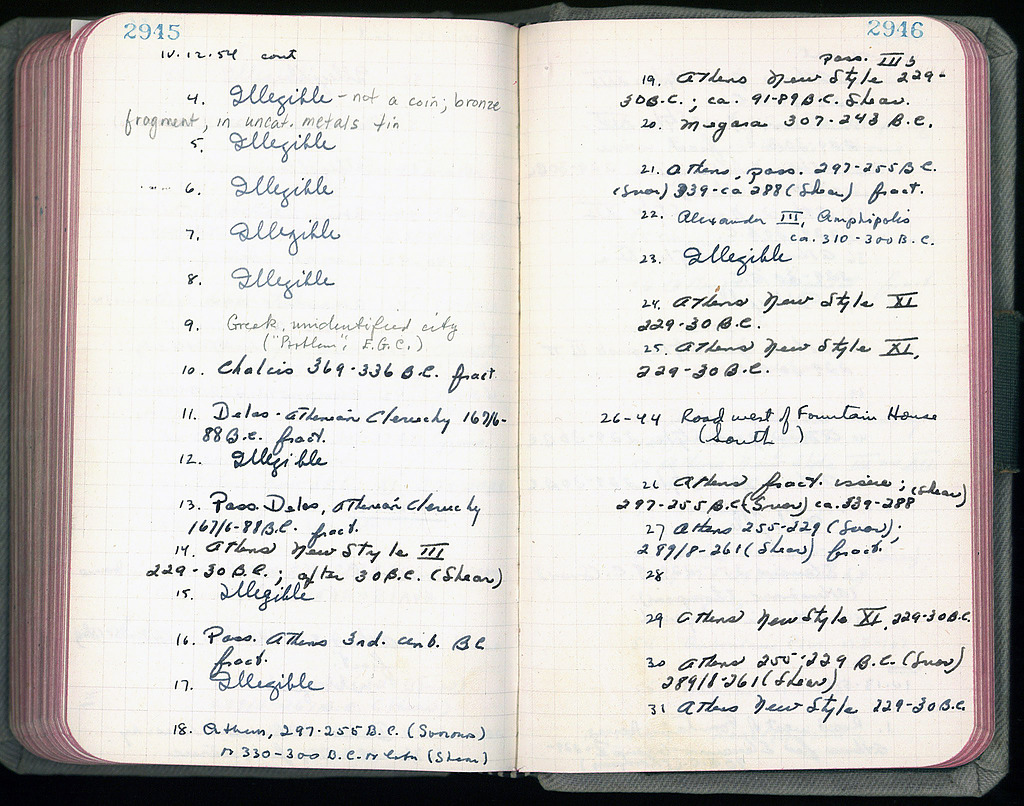 2945
IV.12.54 cont
4. Illegible - not a coin; bronze
fragment, in uncat. metals tin
5. Illegible
6. Illegible
7. Illegible
8. Illegible
9. Greek, unidentified city
("Problem", E.G.C.)
10. Chalcis 369-336 B.C. fract.
11. Delos - Athenian Cleruchy 167/6-
88 B.C. fract.
12. Illegible
13. Poss. Delos, Athenian Cleruchy
167/6-88 B.C. fract.
14. Athens New Style III
229-30 B.C.; after 30 B.C. (Shear)
15. Illegible
16. Poss. Athens 3rd. cent. BC
fract.
17. Illegible
18. Athens, 297-255 B.C. (Svoronos)
or 330-300 B.C. or later (Shear)
2946
poss. III 3
19. Athens New Style 229-
30 B.C.; ca. 91-89 B.C. Shear.
20. Megara 307-243 B.C.
21. Athens, poss. 297-255 B.C.
(Svor) 339-ca 288 (Shear) fract.
22. Alexander III, Amphipolis
ca. 310-300 B.C.
23. Illegible
24. Athens New Style XI
229-30 B.C.
25. Athens New Style XI,
229-30 B.C.
26-44 Road west of Fountain House
(South )
26 Athens fract. ; (Shear)
297-255 B.C. (Svor) ca. 339-288
27 Athens 255-229 (Svor);
289/8-261 (Shear) fract.
28
29 Athens New Style XI, 229-30 B.C.
30 Athens 255-229 B.C. (Svor)
289/8-261 (Shear)
31 Athens New Style 229-30 B.C.